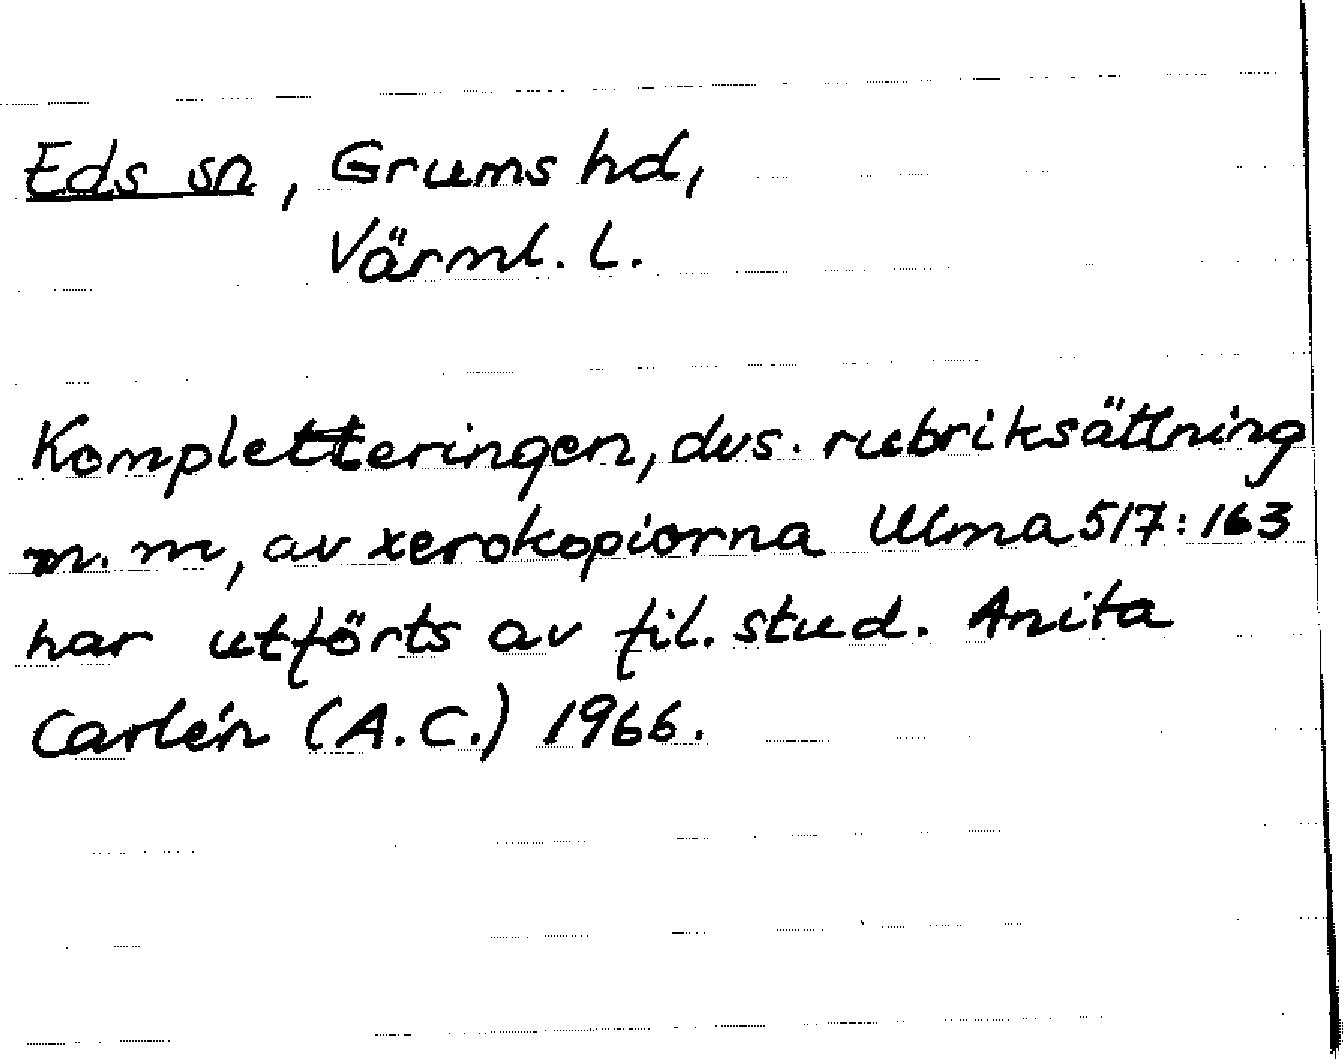 Eds sn, Grums hd,
Värml. l.
Kompletteringen, dvs. rubriksättning
m. m, av xerokopiorna Ulma 517:163
har utförts av fil. stud. Anita
Carlén (A.C.) 1966.